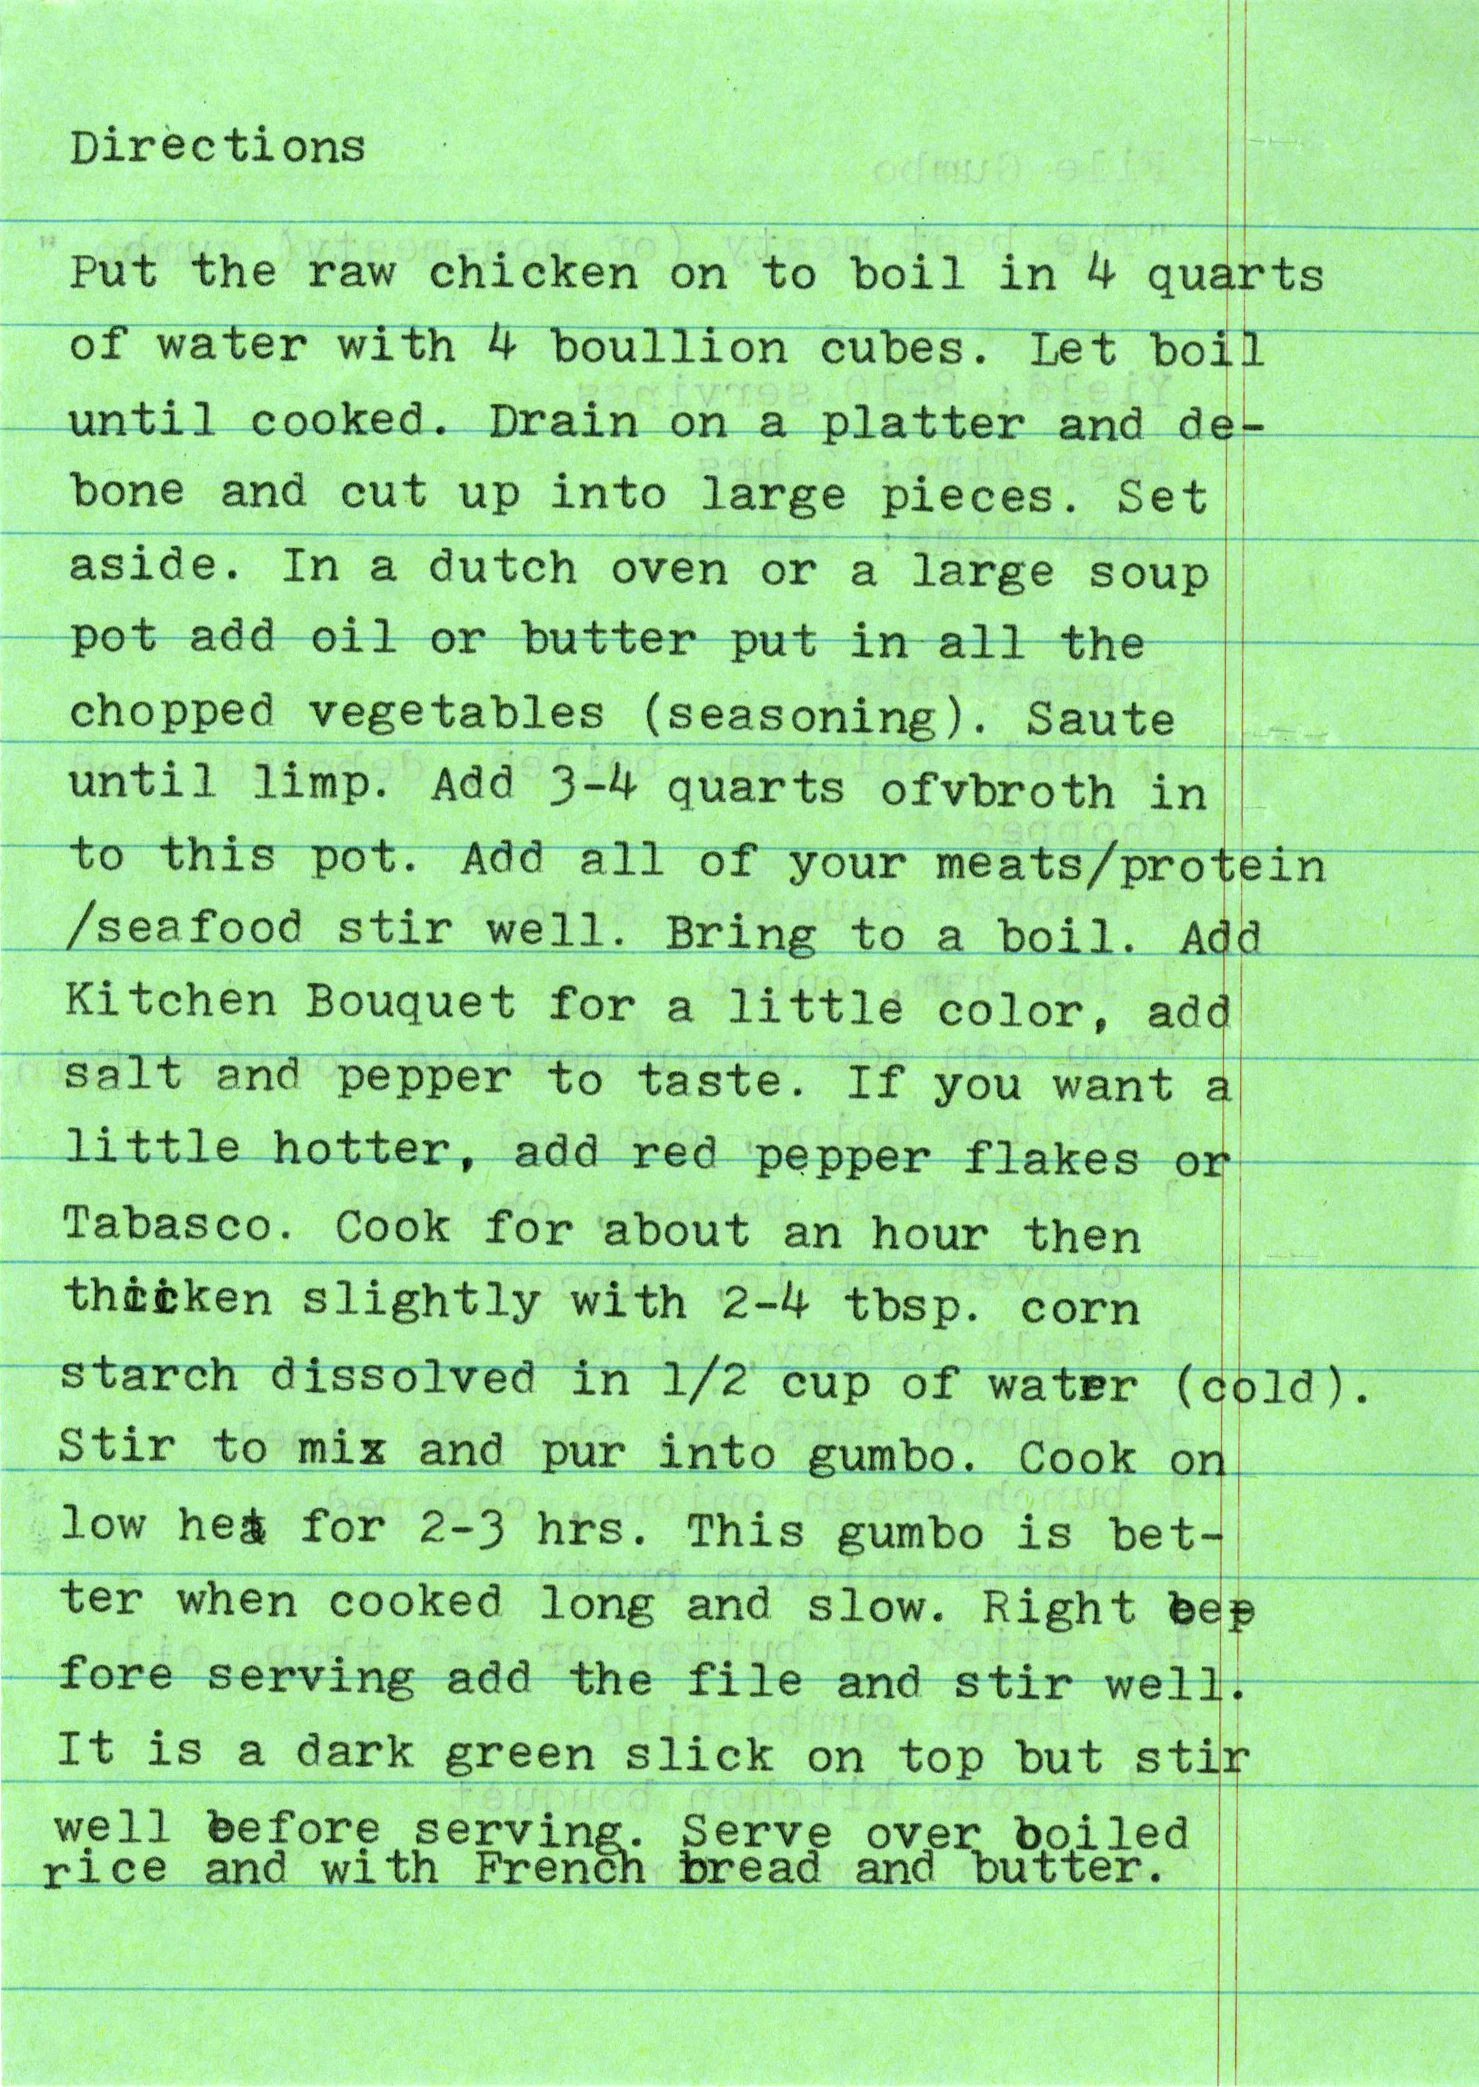 Directions
Put the raw chicken on to boil in 4 quarts
of water with 4 boullion cubes. Let boil
until cooked. Drain on a platter and de-
bone and cut up into large pieces. Set
aside. In a dutch oven or a large soup
pot add oil or butter put in all the
chopped vegetables (seasoning). Saute
until limp. Add 3-4 quarts ofvbroth in
to this pot. Add all of your meats/protein
/seafood stir well. Bring to a boil. Add
Kitchen Bouquet for a little color, add
salt and pepper to taste. If you want a
little hotter, add red pepper flakes or
Tabasco. Cook for about an hour then
thicken slightly with 2-4 tbsp. corn
starch dissolved in 1/2 cup of water (cold).
Stir to mix and pur into gumbo. Cook on
low heat for 2-3 hrs. This gumbo is bet-
ter when cooked long and slow. Right be
fore serving add the file and stir well.
It is a dark green slick on top but stir
well before serving. Serve over boiled
rice and with French bread and butter.